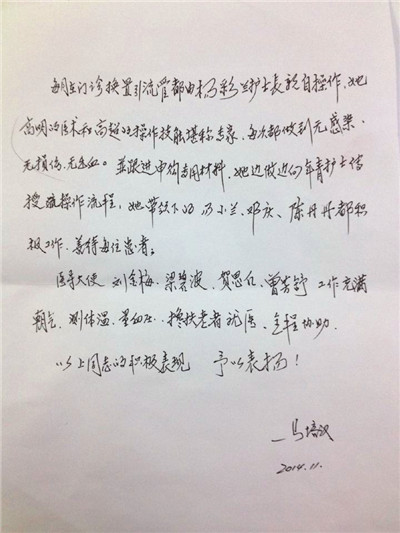 每月在门诊换置引流管都由杨彩兰护士长亲自操作，她
高明的医术和高超的操作技能堪称专家，每次都做到无感染、
无损伤、无出血。并跟进申购专用材料，她边做边向年青护士传
授操作流程，她带领下的冯小兰、邓庆、陈丹丹都积
极工作，善待每位患者。
医导大使刘金梅、梁碧波、贺思、曾芳舒工作充满
朝气，测体温、量血压、搀扶老者就医、全程协助。
以上同志的积极表现 予以表扬！
—马培
2014.11.